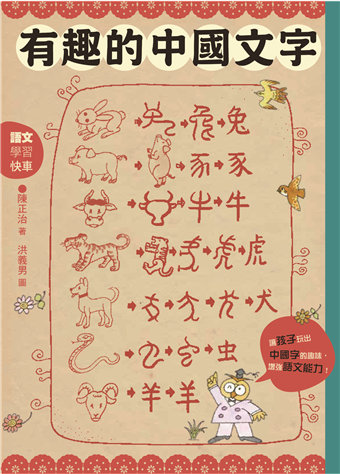 有趣的中國文字
語文
學習
快車
●陳正治 著 洪義男 圖
兔
豕
牛
虎
犬
虫
羊
讓孩子玩出
中國字的趣味，
增強語文能力！